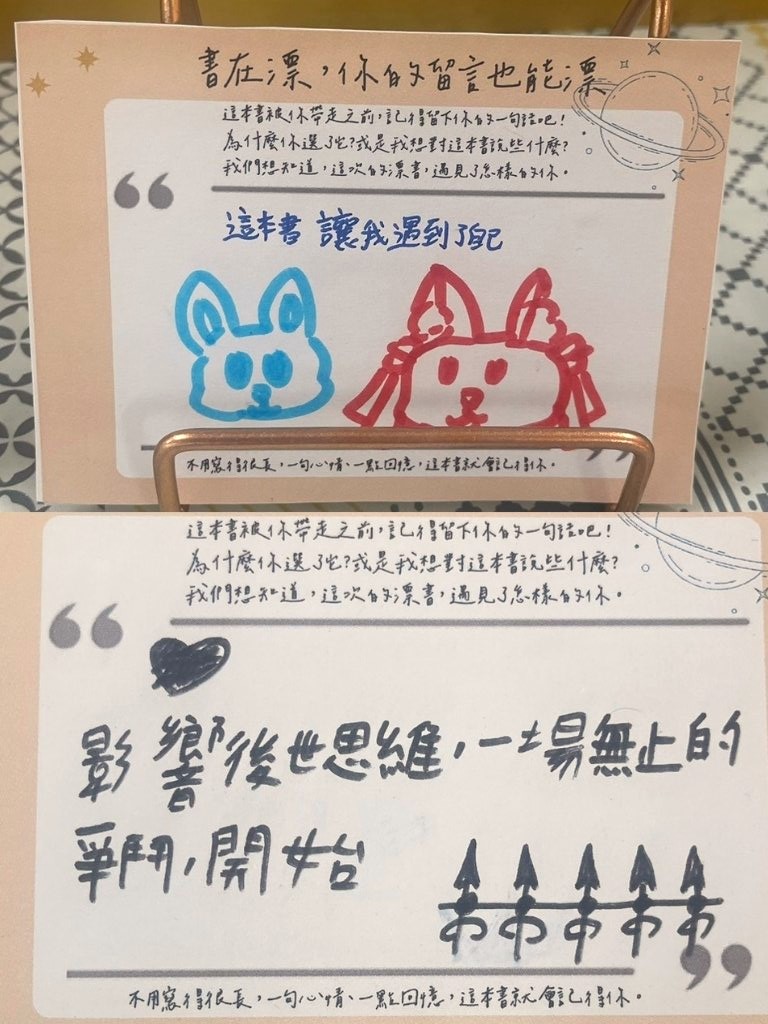 書在漂，你的留言也能漂
這本書被你帶走之前，記得留下你的一句話吧！
為什麼你選了它？或是我想對這本書說些什麼？
我們想知道，這次的漂書，遇見了怎樣的你。
這本書 讓我遇到了自己
不用寫得很長，一句心情、一點回憶，這本書就會記得你。
這本書被你帶走之前，記得留下你的一句話吧！
為什麼你選了它？或是我想對這本書說些什麼？
我們想知道，這次的漂書，遇見了怎樣的你。
影響後世思維，一場無止的
爭鬥，開始
不用寫得很長，一句心情、一點回憶，這本書就會記得你。